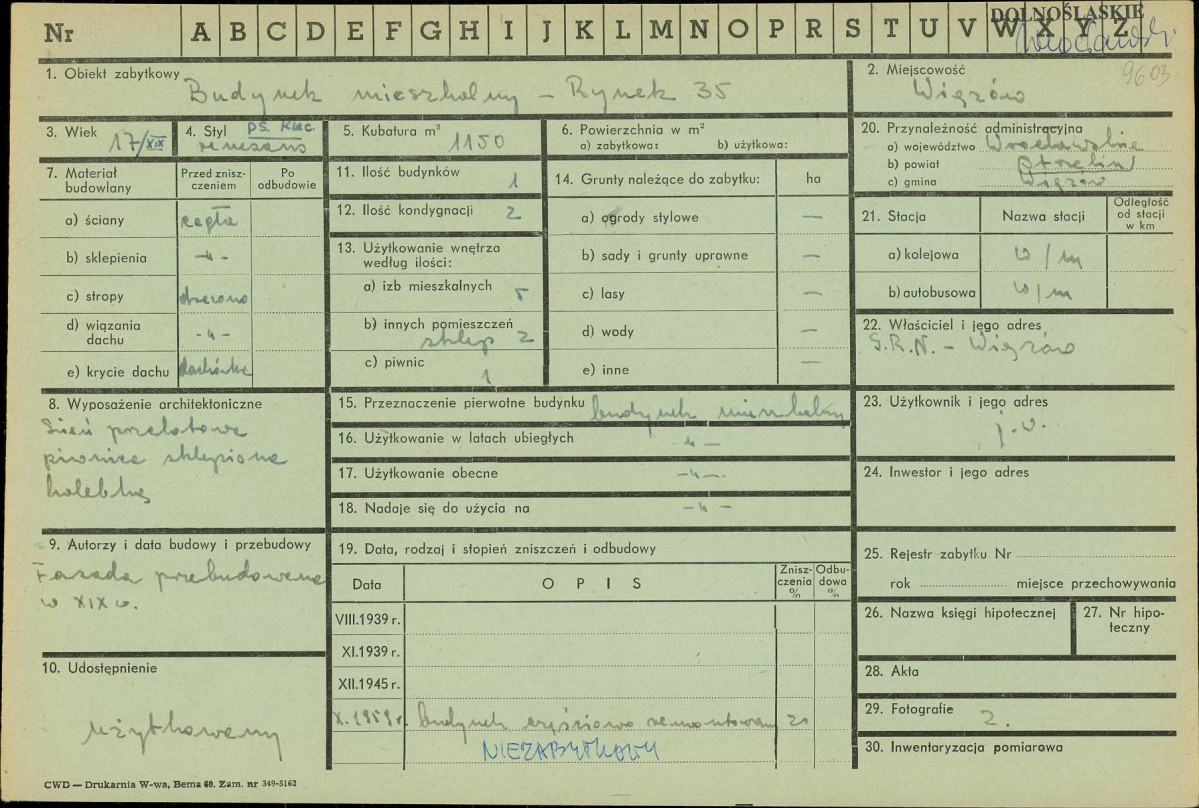 Nr A B C D E F G H I J K L M N O P R S T U V W X Y Z
DOLNOŚLĄSKIE
9603
1. Obiekt zabytkowy
Budynek mieszkalny – Rynek 35
2. Miejscowość
Wiązów
3. Wiek
17/XIX
4. Styl ps. klac.
renesans
5. Kubatura m³
1150
6. Powierzchnia w m²
a) zabytkowa: b) użytkowa:
20. Przynależność administracyjna
a) województwo Wrocławskie
b) powiat Strzelin
c) gmina Wiązów
7. Materiał budowlany
Przed zniszczeniem
Po odbudowie
a) ściany cegła
b) sklepienia -"-
c) stropy drewno
d) wiązania dachu -"-
e) krycie dachu dachówka
11. Ilość budynków 1
12. Ilość kondygnacji 2
13. Użytkowanie wnętrza
według ilości:
a) izb mieszkalnych 5
b) innych pomieszczeń
sklep 2
c) piwnic
1
14. Grunty należące do zabytku: ha
a) ogrody stylowe —
b) sady i grunty uprawne —
c) lasy —
d) wody —
e) inne —
21. Stacja Nazwa stacji Odległość od stacji w km
a) kolejowa w/m
b) autobusowa w/m
22. Właściciel i jego adres
G.R.N. – Wiązów
8. Wyposażenie architektoniczne
Sień przelotowa
piwnice sklepione
kolebką
15. Przeznaczenie pierwotne budynku budynek mieszkalny
16. Użytkowanie w latach ubiegłych -"-
17. Użytkowanie obecne -"-
18. Nadaje się do użycia na -"-
23. Użytkownik i jego adres
j.w.
24. Inwestor i jego adres
9. Autorzy i data budowy i przebudowy
Fasada przebudowana
w XIX w.
10. Udostępnienie
użytkowany
19. Data, rodzaj i stopień zniszczeń i odbudowy
Data OPIS Zniszczenia % Odbudowa %
VIII.1939 r.
XI.1939 r.
XII.1945 r.
X.1959 r. budynek częściowo remontowany
NIEZABYTKOWY
25. Rejestr zabytku Nr
rok miejsce przechowywania
26. Nazwa księgi hipotecznej
27. Nr hipoteczny
28. Akta
29. Fotografie 2.
30. Inwentaryzacja pomiarowa
CWD — Drukarnia W-wa, Bema 60. Zam. nr 349-5162